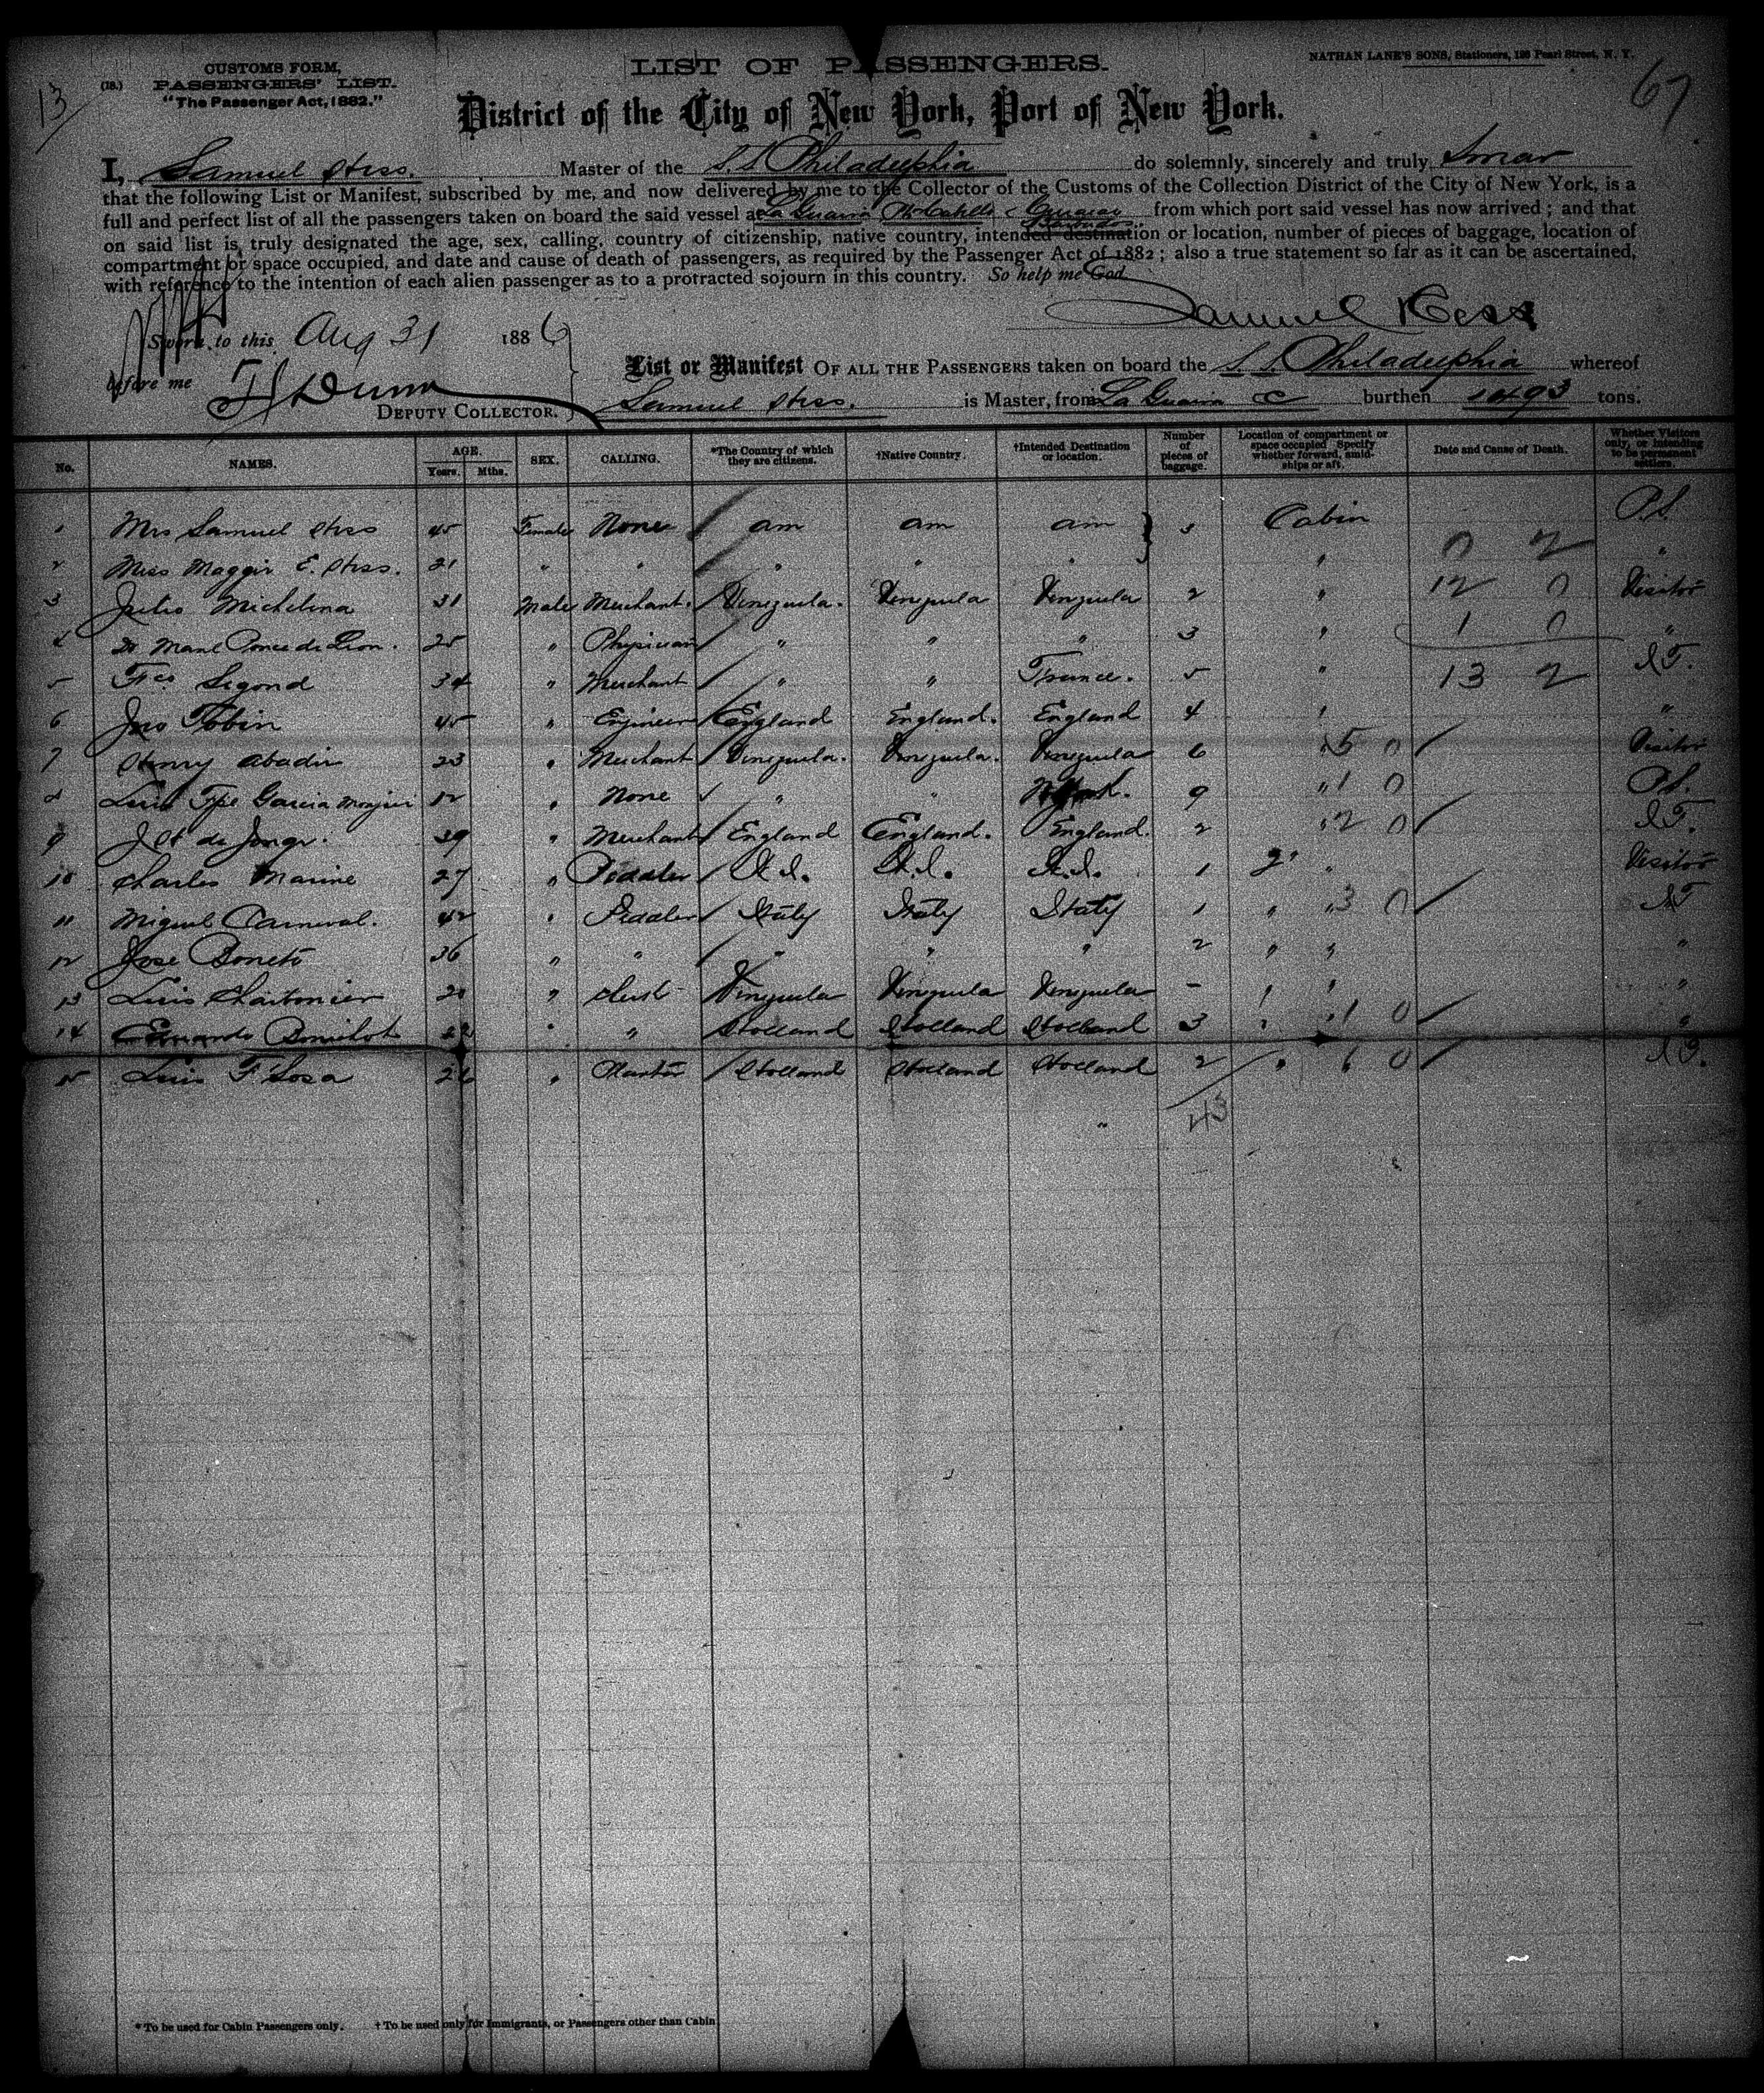 13
67
(18.) CUSTOMS FORM,
PASSENGERS' LIST.
"The Passenger Act, 1882."
LIST OF PASSENGERS.
NATHAN LANE'S SONS, Stationers, 188 Pearl Street, N. Y.
District of the City of New York, Port of New York.
I, Samuel Hess. Master of the S.S Philadelphia do solemnly, sincerely and truly Swear
that the following List or Manifest, subscribed by me, and now delivered by me to the Collector of the Customs of the Collection District of the City of New York, is a
full and perfect list of all the passengers taken on board the said vessel at La Guaira Pto Cabello & Curacao from which port said vessel has now arrived; and that
on said list is truly designated the age, sex, calling, country of citizenship, native country, intended destination or location, number of pieces of baggage, location of
compartment or space occupied, and date and cause of death of passengers, as required by the Passenger Act of 1882; also a true statement so far as it can be ascertained,
with reference to the intention of each alien passenger as to a protracted sojourn in this country. So help me God
Samuel Hess
Sworn to this Aug 31 1886
before me
Dunn
DEPUTY COLLECTOR.
List or Manifest OF ALL THE PASSENGERS taken on board the S. S. Philadelphia whereof
Samuel Hess. is Master, from La Guaira burthen 1493 tons.
No. NAMES. AGE. Years. Mths. SEX. CALLING. *The Country of which they are citizens. †Native Country. †Intended Destination or location. Number of pieces of baggage. Location of compartment or space occupied Specify whether forward, amidships or aft. Date and Cause of Death. Whether Visitors only, or intending to be permanent settlers.
1 Mrs Samuel Hess 45 Female None am am am 3 Cabin P.S.
2 Miss Maggie E. Hess. 21 " " " " " " 0 2 "
3 Julio Michelena 31 Male Merchant. Venezuela. Venezuela Venezuela 2 " 12 0 Visitor
4 Dr Manl Ponce de Leon. 25 " Physician " " " 3 " 1 0 "
5 Fco Segond 34 " Merchant " " France. 5 " 13 2
6 Jno Tobin 45 " Engineer England England. England 4 " "
7 Henry Abadie 23 " Merchant Venezuela. Venezuela. Venezuela 6 " 5 0 Visitor
8 Luis Garcia 52 " None " " 9 " 1 0 P.S.
9 de Jongr. 39 " Merchant England England. England. 2 " 2 0
10 Charles Marine 27 " Peddler 1 2" " Visitor
11 Miguel Carneval. 42 " Peddler Italy Italy Italy 1 " " 3 0
12 Jose Boneto 36 " " " " " 2 " " "
13 Luis Charbonier 20 " Venezuela Venezuela Venezuela - " " "
14 22 " " Holland Holland Holland 3 " " 1 0 "
15 Luis F Sosa 26 " Holland Holland Holland 2 " 6 0
43
* To be used for Cabin Passengers only. † To be used only for Immigrants, or Passengers other than Cabin